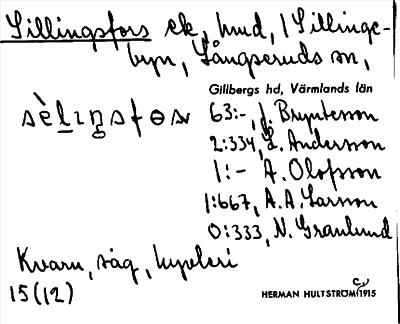 Sillingsfors ek, hmd, / Sillinge-
byn, Långseruds sn,
Gillbergs hd, Värmlands län
sèlıŋsfɵsr
63:-, J. Bryntesson
2:334, L. Andersson
1:- A. Olofsson
1:667, A. A. Larsson
0:333, N. Granlund
Kvarn, såg, hyvleri
15(12)
HERMAN HULTSTRÖM 1915